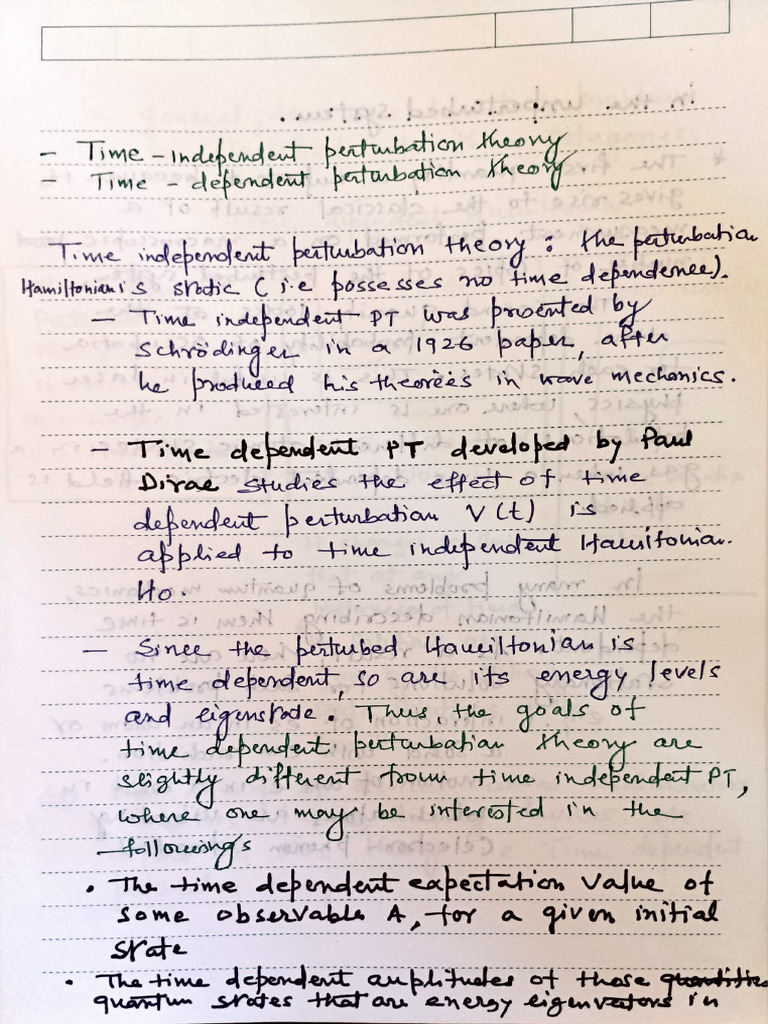 - Time - independent perturbation theory
- Time - dependent perturbation theory
Time independent perturbation theory : the perturbation
Hamiltonian is static ( i.e possesses no time dependence).
- Time independent PT was presented by
Schrödinger in a 1926 paper, after
he produced his theories in wave mechanics.
- Time dependent PT developed by Paul
Dirac studies the effect of time
dependent perturbation V(t) is
applied to time independent Hamiltonian.
Ho.
- Since the perturbed Hamiltonian is
time dependent, so are its energy levels
and eigenstate. Thus, the goals of
time dependent perturbation theory are
slightly different from time independent PT,
where one may be interested in the
followings
• The time dependent expectation value of
some observable A, for a given initial
state
• The time dependent amplitudes of those quantities
quantum states that are energy eigenvators in